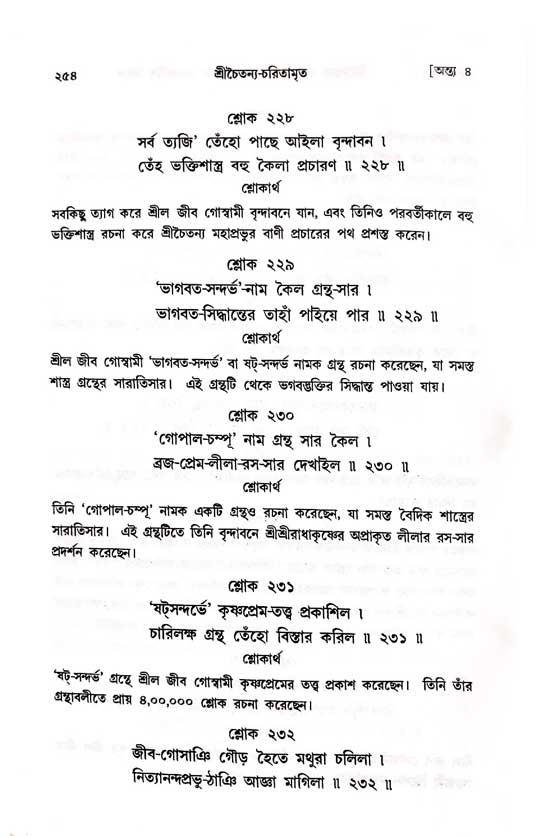 ২৫৪
শ্রীচৈতন্য-চরিতামৃত
[অন্ত্য ৪
শ্লোক ২২৮
সর্ব ত্যজি' তেঁহো পাছে আইলা বৃন্দাবন ।
তেঁহ ভক্তিশাস্ত্র বহু কৈলা প্রচারণ ॥ ২২৮ ॥
শ্লোকার্থ
সবকিছু ত্যাগ করে শ্রীল জীব গোস্বামী বৃন্দাবনে যান, এবং তিনিও পরবর্তীকালে বহু
ভক্তিশাস্ত্র রচনা করে শ্রীচৈতন্য মহাপ্রভুর বাণী প্রচারের পথ প্রশস্ত করেন।
শ্লোক ২২৯
'ভাগবত-সন্দর্ভ'-নাম কৈল গ্রন্থ-সার ।
ভাগবত-সিদ্ধান্তের তাহাঁ পাইয়ে পার ॥ ২২৯ ॥
শ্লোকার্থ
শ্রীল জীব গোস্বামী 'ভাগবত-সন্দর্ভ' বা ষট্-সন্দর্ভ নামক গ্রন্থ রচনা করেছেন, যা সমস্ত
শাস্ত্র গ্রন্থের সারাতিসার। এই গ্রন্থটি থেকে ভগবদ্ভক্তির সিদ্ধান্ত পাওয়া যায়।
শ্লোক ২৩০
'গোপাল-চম্পূ' নাম গ্রন্থ সার কৈল ।
ব্রজ-প্রেম-লীলা-রস-সার দেখাইল ॥ ২৩০ ॥
শ্লোকার্থ
তিনি 'গোপাল-চম্পূ' নামক একটি গ্রন্থও রচনা করেছেন, যা সমস্ত বৈদিক শাস্ত্রের
সারাতিসার। এই গ্রন্থটিতে তিনি বৃন্দাবনে শ্রীশ্রীরাধাকৃষ্ণের অপ্রাকৃত লীলার রস-সার
প্রদর্শন করেছেন।
শ্লোক ২৩১
'ষট্সন্দর্ভে' কৃষ্ণপ্রেম-তত্ত্ব প্রকাশিল ।
চারিলক্ষ গ্রন্থ তেঁহো বিস্তার করিল ॥ ২৩১ ॥
শ্লোকার্থ
'ষট্-সন্দর্ভ' গ্রন্থে শ্রীল জীব গোস্বামী কৃষ্ণপ্রেমের তত্ত্ব প্রকাশ করেছেন। তিনি তাঁর
গ্রন্থাবলীতে প্রায় ৪,০০,০০০ শ্লোক রচনা করেছেন।
শ্লোক ২৩২
জীব-গোসাঞি গৌড় হৈতে মথুরা চলিলা ।
নিত্যানন্দপ্রভু-ঠাঞি আজ্ঞা মাগিলা ॥ ২৩২ ॥